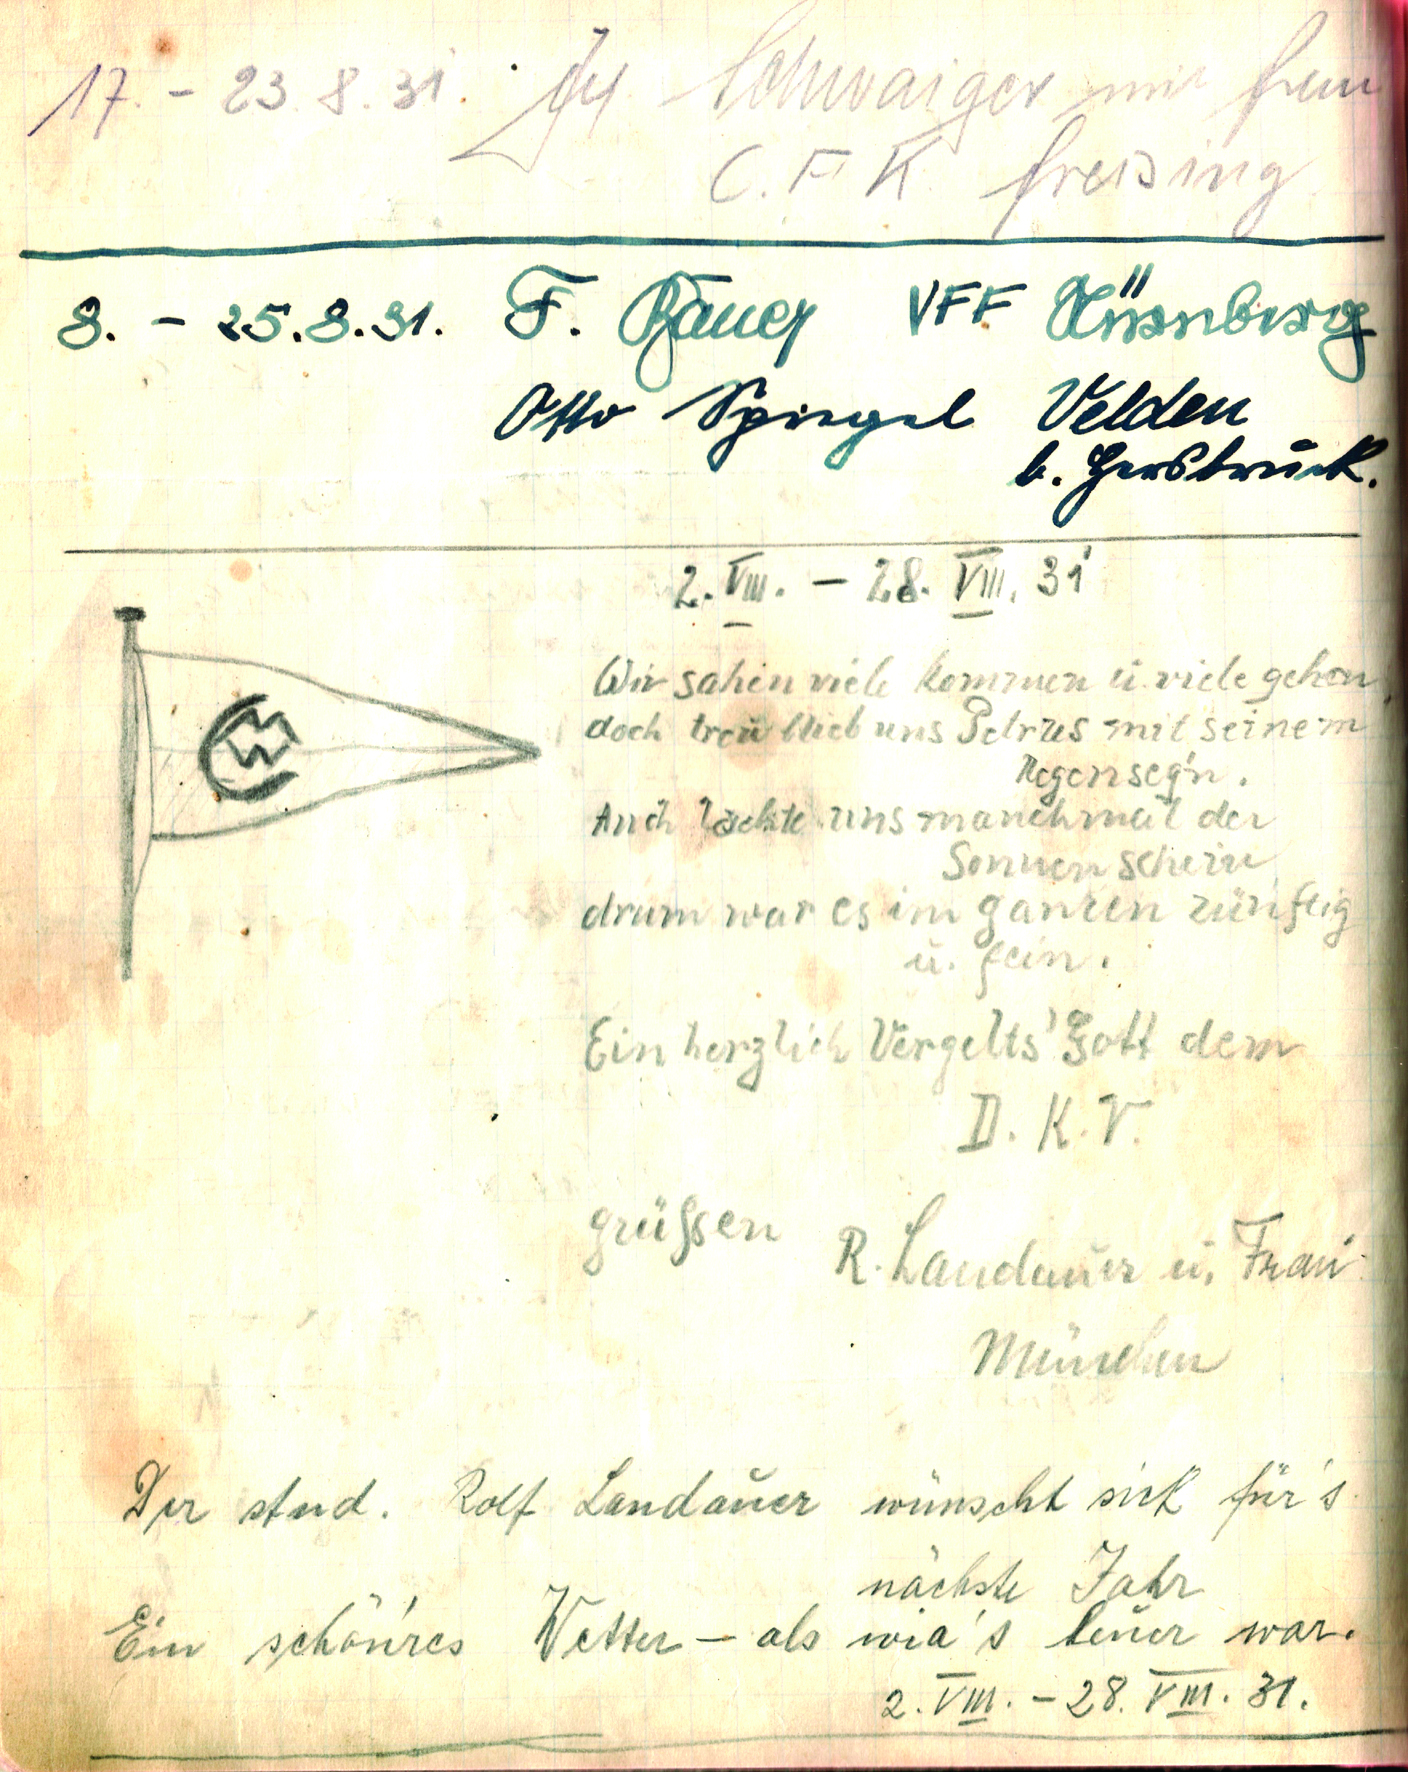 17. - 23. 8. 31. Schwaiger mit Frau
C. F. K. Freising
8. - 25.8.31. F. Bauer VFF Nürnberg
Otto Spiegel Velden
b. Hersbruck.
2. VIII. - 28. VIII. 31
Wir sahen viele kommen u. viele gehen,
doch treu blieb uns Petrus mit seinem
Regenseg'n.
Auch lachte uns manchmal der
Sonnenschein
drum war es im ganzen zünftig
u. fein.
Ein herzlich Vergelts' Gott dem
D. K. V.
grüßen R. Landauer u. Frau
München
Der stud. Rolf Landauer wünscht sich für's
nächste Jahr
Ein schön'res Wetter - als wia's heuer war.
2. VIII. - 28. VIII. 31.